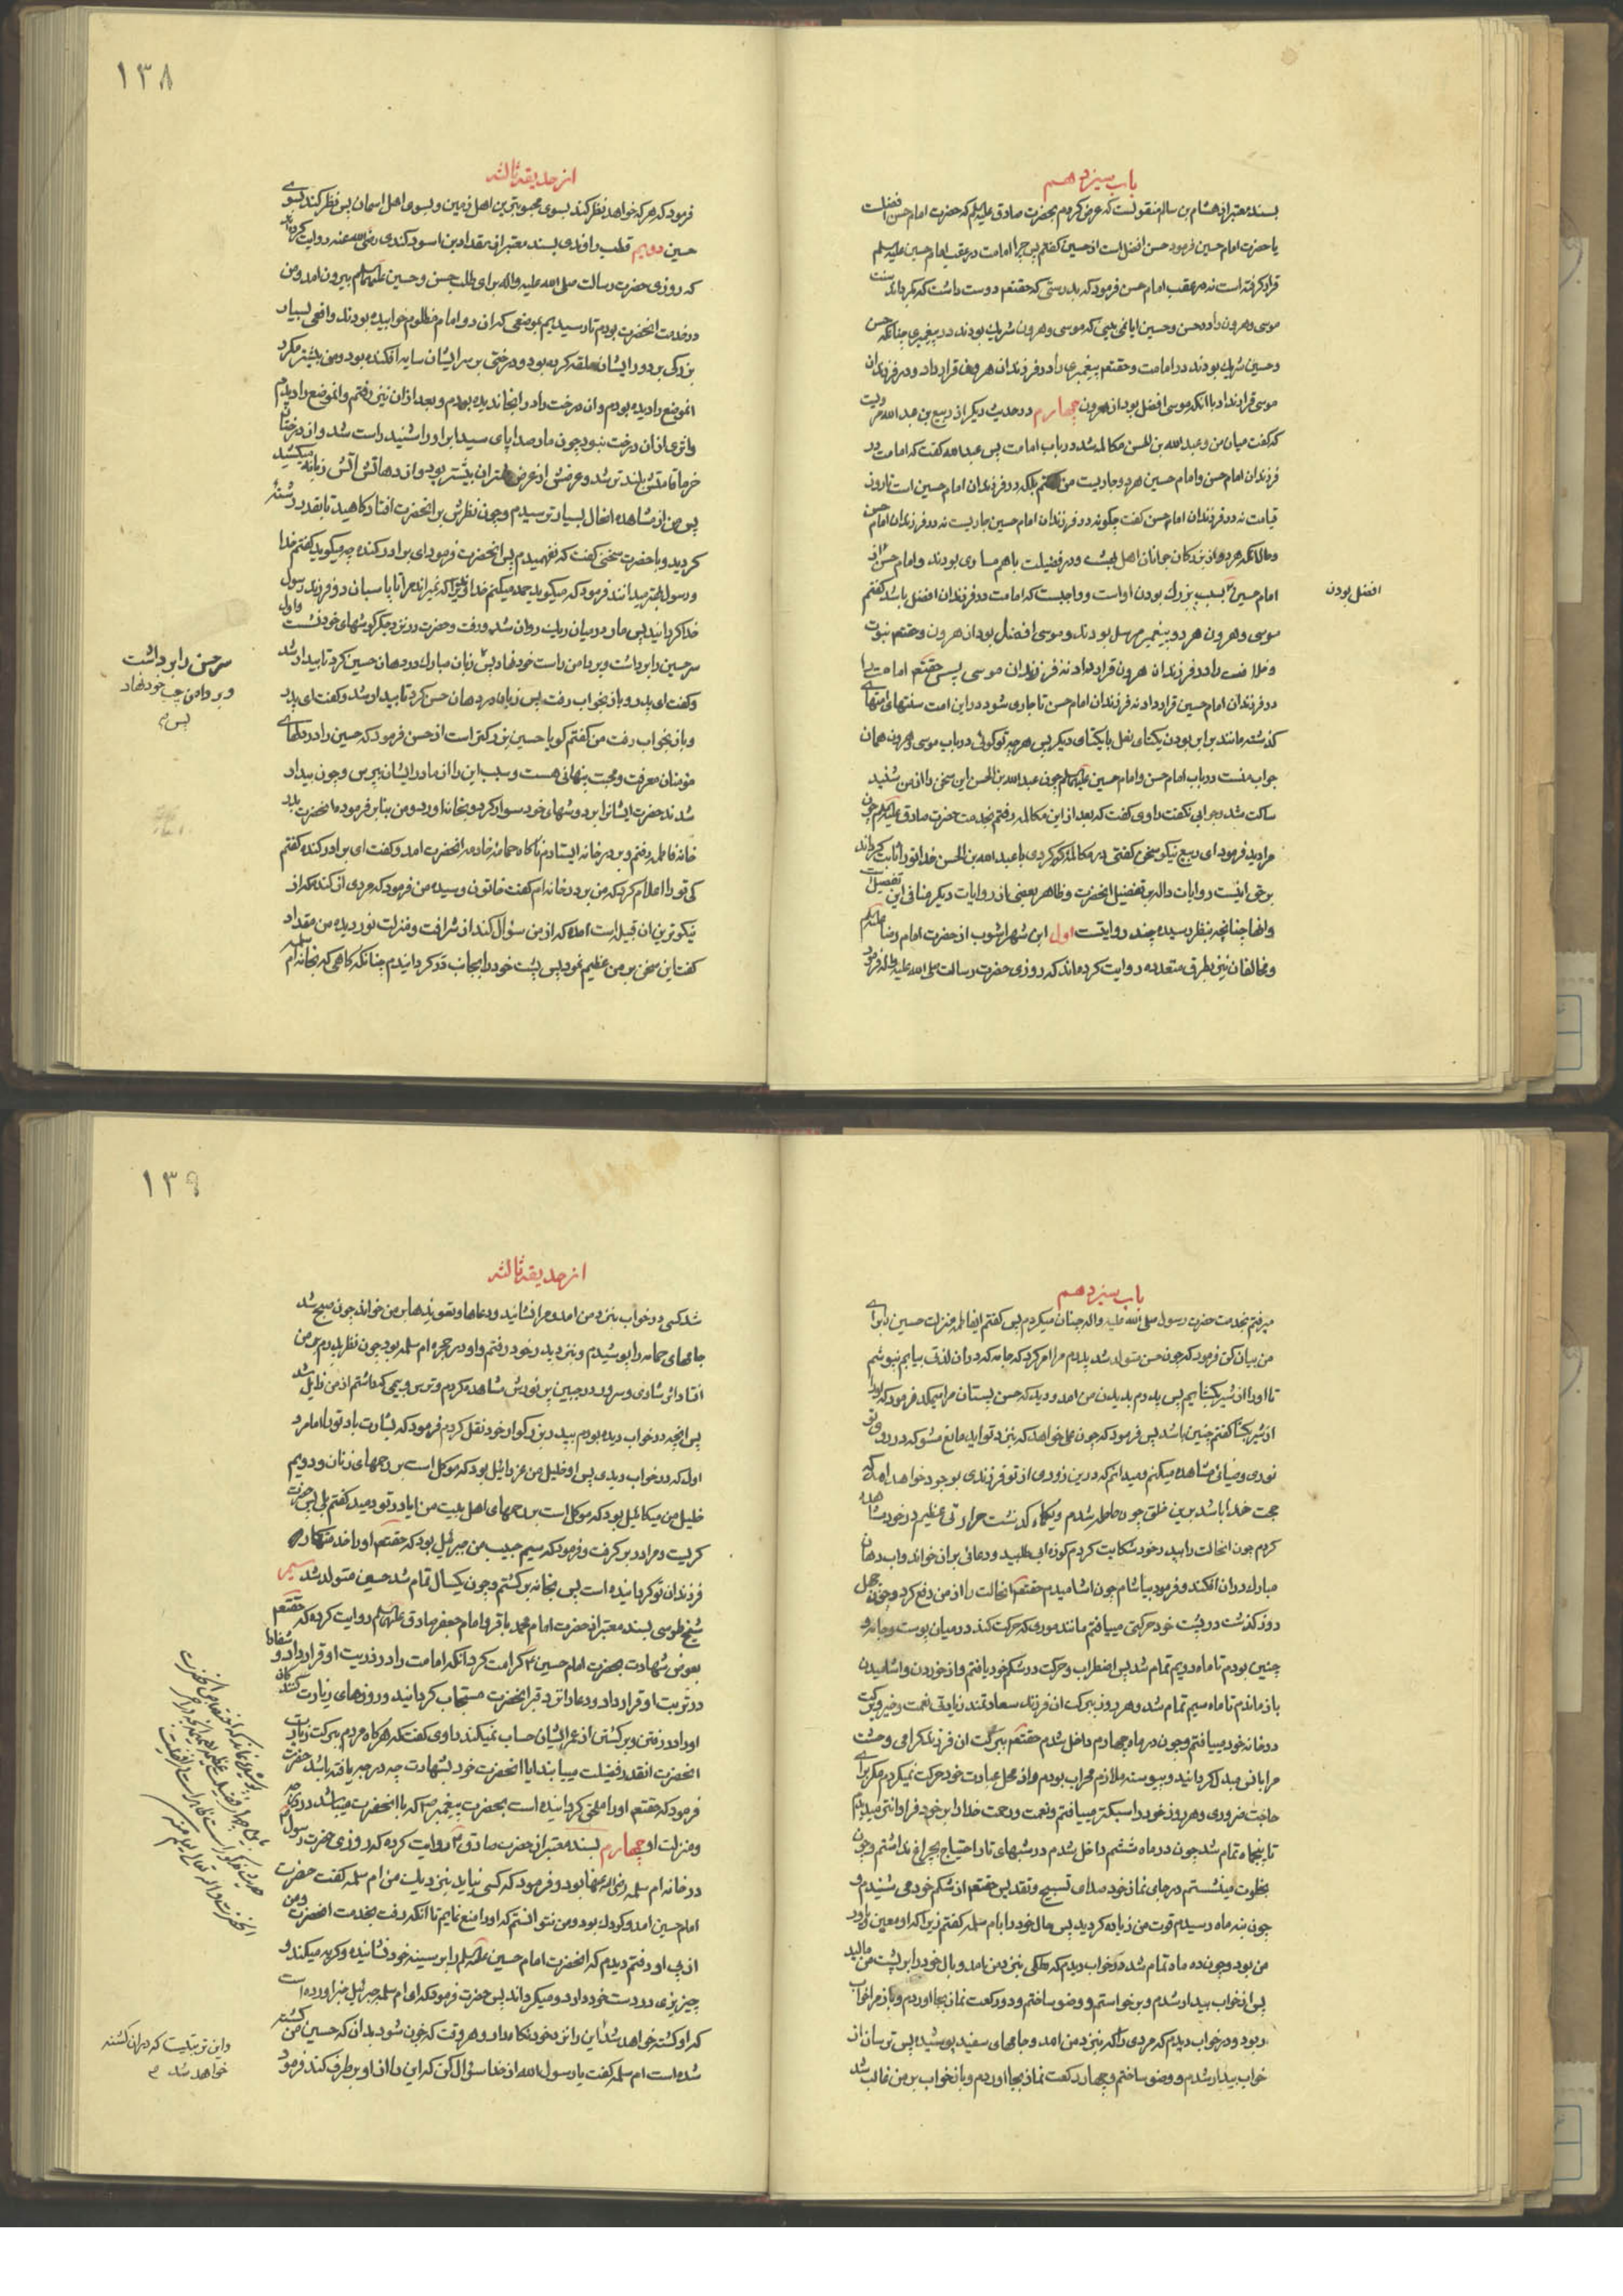 باب سیزدهم
بسند معتبر از هشام بن سالم منقولست که عرض کردم بحضرت صادق علیه السلم که حضرت امام حسن افضلست
یا حضرت امام حسین فرمود حسن افضل است از حسین کفتم پس چرا امامت در عقب امام حسین علیه السلم
قرار کرفته است نه در عقب امام حسن فرمود که بدرستی که حقتعم دوست داشت که بکرداند سنت
موسی و هرون را در حسن و حسین ایا نمی بینی که موسی و هرون شریک بودند در پیغمبری چنانکه حسن
و حسین شریک بودند در امامت و حقتعم پیغمبری را در فرزندان هرون قرار داد و در فرزندان
موسی قرار نداد با انکه موسی افضل بود از هرون چهارم در حدیث دیکر از ربیع بن عبد الله مرویست
که کفت میان من و عبد الله بن الحسن مکالمه شد در باب امامت پس عبد الله کفت که امامت در
فرزندان امام حسن و امام حسین هر دو جاریست من کفتم بلکه در فرزندان امام حسین است تا روز
قیامت نه در فرزندان امام حسن کفت چکونه در فرزندان امام حسین جاریست نه در فرزندان امام حسن
و حال انکه هر دو از بزرکان جوانان اهل بهشت و در فضیلت با هم مساوی بودند و امام حسن را از
امام حسین بسبب بزرک بودن اولی است و واجبست که امامت در فرزندان افضل باشد کفتم
افضل بودن
موسی و هرون هر دو پیغمبر مرسل بودند و موسی افضل بود از هرون و حقتعم نبوت
و خلافت را در فرزندان هرون قرار داد نه فرزندان موسی پس حقتعم امامت را
در فرزندان امام حسین قرار داد نه فرزندان امام حسن تا جاری شود در این امت سنتهای امتهای
کذشته مانند برابر بودن یکتای نعل با یکتای دیکر پس هر چه تو کوئی در باب موسی و هرون همان
جواب منست در باب امام حسن و امام حسین علیهما السلم چون عبد الله بن الحسن این سخن را از من شنید
ساکت شد و جوابی نکفت راوی کفت که بعد از این مکالمه رفتم بخدمت حضرت صادق علیه السلم چون
مرا دید فرمود ای ربیع نیکو سخن کفتی در مکالمه که کردی با عبد الله بن الحسن خدا تو را ثابت کرداند
بر حق اینست روایات داله بر تفضیل انحضرت و ظاهر بعضی از روایات دیکر منافی این تفضیل است
و انها چنانچه بنظر رسیده چند روایتست اول ابن شهراشوب از حضرت امام رضا علیه السلم
و مخالفان نیز بطرق متعدده روایت کرده اند که روزی حضرت رسالت صلی الله علیه و اله فرمود
۱۳۸
از حدیقه ثالثه
فرمود که هر که خواهد نظر کند بسوی محبوبترین اهل زمین و بسوی اهل اسمان پس نظر کند بسوی
حسین دویم قطب راوندی بسند معتبر از مقداد بن اسود کندی رضی الله عنه روایت کرده
که روزی حضرت رسالت صلی الله علیه و اله برای طلب حسن و حسین علیهما السلم بیرون امد و من
در خدمت انحضرت بودم تا رسیدیم بموضعی که ان دو امام مظلوم خوابیده بودند و افعی بسیار
بزرکی بر دور ایشان حلقه کرده بود و درختی بر سر ایشان سایه افکنده بود و من پیشتر مکرر
انموضع را دیده بودم و ان درخت را در انجا ندیده بودم و بعد از ان نیز رفتم و انموضع را دیدم
و اثری از ان درخت نبود چون مار صدای پای سید ابرار را شنید راست شد و از درختان
خرما قامتش بلند تر شد و عرضش از عرض شتران بیشتر بود و از دهانش اتش زبانه میکشید
پس من از مشاهده انحال بسیار ترسیدم و چون نظرش بر انحضرت افتاد کاهید تا بقدر رشته
کردید و با حضرت سخنی کفت که نفهمیدم پس انحضرت فرمود ای برادر کنده چه میکوید کفتم خدا
و رسول بهتر میدانند فرمود که میکوید حمد میکنم خداوندیرا که نمیراند مرا تا پاسبان دو فرزند رسول
خدا کردانید پس مار در میان ریک روان شد و رفت و حضرت در نزد جکر کوشهای خود نشست و اول
سر حسین را برداشت و بر دامن راست خود نهاد پس زبان مبارک در دهان حسین کرد تا بیدار شد
سر حسن را برداشت
و بر دامن چپ خود نهاد
پس
و کفت ای پدر و باز بخواب رفت پس زبان در دهان حسن کرد تا بیدار شد و کفت ای پدر
و باز بخواب رفت من کفتم کویا حسین بزرکتر است از حسن فرمود که حسین را در دلهای
مؤمنان معرفت و محبت پنهانی هست و سبب این را از مادر ایشان بپرس و چون بیدار
شدند حضرت ایشانرا بر دوشهای خود سوار کرد و بخانه اورد و من بنابر فرموده انحضرت بدر
خانه فاطمه رفتم و بر در خانه ایستادم ناکاه حمامه خادمه انحضرت امد و کفت ای برادر کنده کفتم
کی تو را اعلام کرد که من بر در خانه ام کفت خاتون و سیده من فرمود که مردی از کنده که از
نیکوترین ان قبیله است امده که از من سؤال کند از شرافت و منزلت نور دیده من مقداد
کفت این سخن بر من عظیم نمود پس پشت خود را بجانب در کردانیدم چنانکه کاهی که بخانه ام سلمه
باب سیزدهم
میرفتم بخدمت حضرت رسول صلی الله علیه و اله چنان میکردم پس کفتم ایفاطمه منزلت حسین را برای
من بیان کن فرمود که چون حسن متولد شد پدرم مرا امر کرد که جامه که در ان لذتی بیابم نپوشم
تا او را از شیر بکشایم پس پدرم بدیدن من امد و دید که حسن پستان مرا میمکد فرمود که او را
از شیر بکشا کفتم چنین باشد پس فرمود که چون علی خواهد که بنزد تو اید مانع مشو که در روی تو
نوری و ضیائی مشاهده میکنم و میدانم که در این زودی از تو فرزندی بوجود خواهد امد که
حجت خدا باشد بر این خلق چون حامله شدم و یکماه کذشت حرارتی عظیم در خود مشاهده
کردم چون انحالت را بپدر خود شکایت کردم کوزه ابی طلبید و دعائی بر ان خواند و اب دهان
مبارک در ان افکند و فرمود بیاشام چون اشامیدم حقتعم انحالت را از من دفع کرد و چون چهل
روز کذشت در پشت خود حرکتی مییافتم مانند موری که حرکت کند در میان پوست و جامه و
چنین بودم تا ماه دویم تمام شد پس اضطراب و حرکت در شکم خود یافتم و از خوردن و اشامیدن
باز ماندم تا ماه سیم تمام شد و هر روز ببرکت ان فرزند سعادتمند زیادتی نعمت و خیر و برکت
در خانه خود مییافتم و چون در ماه چهارم داخل شدم حقتعم ببرکت ان فرزند کرامی وحشت
مرا بانس مبدل کردانید و پیوسته ملازم محراب بودم و از محل عبادت خود حرکت نمیکردم مکر برای
حاجت ضروری و هر روز خود را سبکتر مییافتم و نعمت و رحمت خدا را بر خود فراوانتر میدیدم
تا پنجماه تمام شد چون در ماه ششم داخل شدم در شبهای تار احتیاج بچراغ نداشتم و چون
بخلوت مینشستم در جای نماز خود صدای تسبیح و تقدیس حقتعم از شکم خود می شنیدم و
چون بنه ماه رسیدم قوت من زیاده کردید پس حال خود را بام سلمه کفتم زیرا که او معین و یاور
من بود و چون ده ماه تمام شد در خواب دیدم که ملکی بنزد من امد و بال خود را بر پشت من مالید
پس از خواب بیدار شدم و برخواستم و وضو ساختم و دو رکعت نماز بجا اوردم و باز مرا خواب
ربود و در خواب دیدم که مردی را که بنزد من امد و جامهای سفید پوشیده پس ترسان از
خواب بیدار شدم و وضو ساختم و چهار رکعت نماز بجا اوردم و باز خواب بر من غالب شد
۱۳۹
از حدیقه ثالثه
شد کسی در خواب بنزد من امد و مرا نشانید و دعاها و تعویذها بر من خواند چون صبح شد
جامهای حمامه را پوشیدم و بنزد پدر خود رفتم و او در حجره ام سلمه بود چون نظر پدرم بر من
افتاد اثر شادی و سرور در جبین پر نورش مشاهده کردم و ترس و بیمی که داشتم از من زایل شد
پس انچه در خواب دیده بودم بپدر بزرکوار خود نقل کردم فرمود که بشارت باد تو را اما مرد
اول که در خواب دیدی پس او خلیل من عزرائیل بود که موکل است بر رحمهای زنان و دویم
خلیل من میکائیل بود که موکل است بر رحمهای اهل بیت من ایا در تو دمید کفتم بلی پس حضرت
کریست و مرا در بر کرفت و فرمود که سیم حبیب من جبرئیل بود که حقتعم او را خدمتکار
فرزندان تو کردانیده است پس بخانه برکشتم و چون یکسال تمام شد حسین متولد شد سیم
شیخ طوسی بسند معتبر از حضرت امام محمد باقر و امام جعفر صادق علیهما السلم روایت کرده که حقتعم
بعوض شهادت بحضرت امام حسین کرامت کرد انکه امامت را در ذریت او قرار داد و شفا را
در تربت او قرار داد و دعا را نزد قبر انحضرت مستجاب کردانید و روزهای زیارت کنندکان
او را در رفتن و برکشتن از عمر ایشان حساب نمیکند راوی کفت که هرکاه مردم ببرکت زیارت
انحضرت انقدر فضیلت مییابند ایا انحضرت خود بشهادت چه درجه یافته باشد حضرت
فرمود که حقتعم او را ملحق کردانیده است بحضرت پیغمبر ص که با انحضرت میباشد در درجه
و منزلت او چهارم بسند معتبر از حضرت صادق روایت کرده که روزی حضرت رسول
در خانه ام سلمه رضی الله عنها بود و فرمود که کسی نیاید بنزدیک من ام سلمه کفت حضرت
امام حسین امد و کودک بود و من نتوانستم که او را منع نمایم تا انکه رفت بخدمت انحضرت و من
از پی او رفتم دیدم که انحضرت امام حسین علیه السلم را بر سینه خود نشانیده و کریه میکند و
چیزی در دست خود دارد و میکرداند پس حضرت فرمود که ای ام سلمه جبرئیل خبر اورده است
که او کشته خواهد شد این را نزد خود نکاه دار و هر وقت که خون شود بدان که حسین من کشته
شده است ام سلمه کفت یا رسول الله از خدا سؤال کن که این را از او بر طرف کند فرمود
و این تربتیست که در ان کشته
خواهد شد